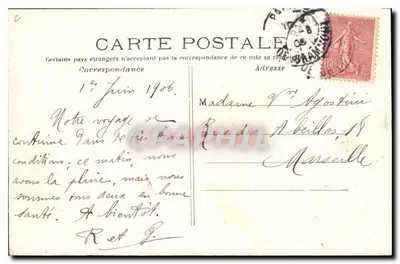 CARTE POSTALE
Certains pays étrangers n'acceptant pas la correspondance de ce côté se
Correspondance
Adresse
1er Juin 1906
Notre voyage se
continue dans de très bonnes
conditions, ce matin, nous
avons la pluie, mais nous
sommes tous deux en bonne
santé. A bientôt.
R et G.
Madame Vve Agostini
Rue des Abeilles, 18
Marseille